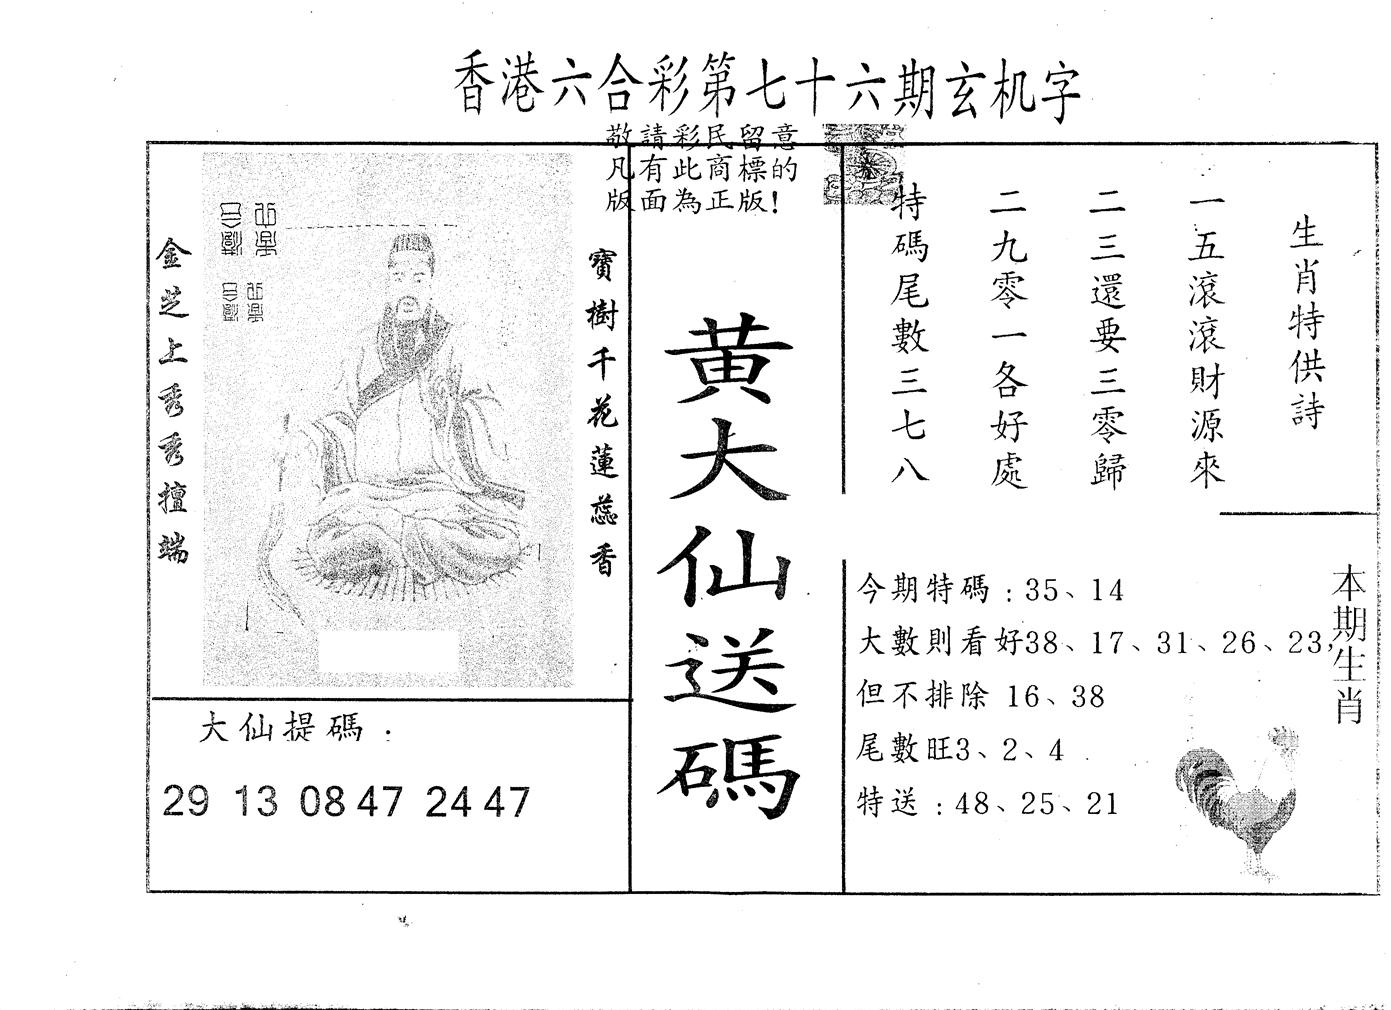 香港六合彩第七十六期玄机字
敬請彩民留意
凡有此商標的
版面為正版!
生肖特供詩
一五滾滾財源來
二三還要三零歸
二九零一各好處
特碼尾數三七八
黄大仙送碼
寶樹千花蓮蕊香
金芝上秀秀擅端
大仙提碼:
29 13 08 47 24 47
本期生肖
今期特碼:35、14
大數則看好38、17、31、26、23,
但不排除 16、38
尾數旺3、2、4
特送:48、25、21